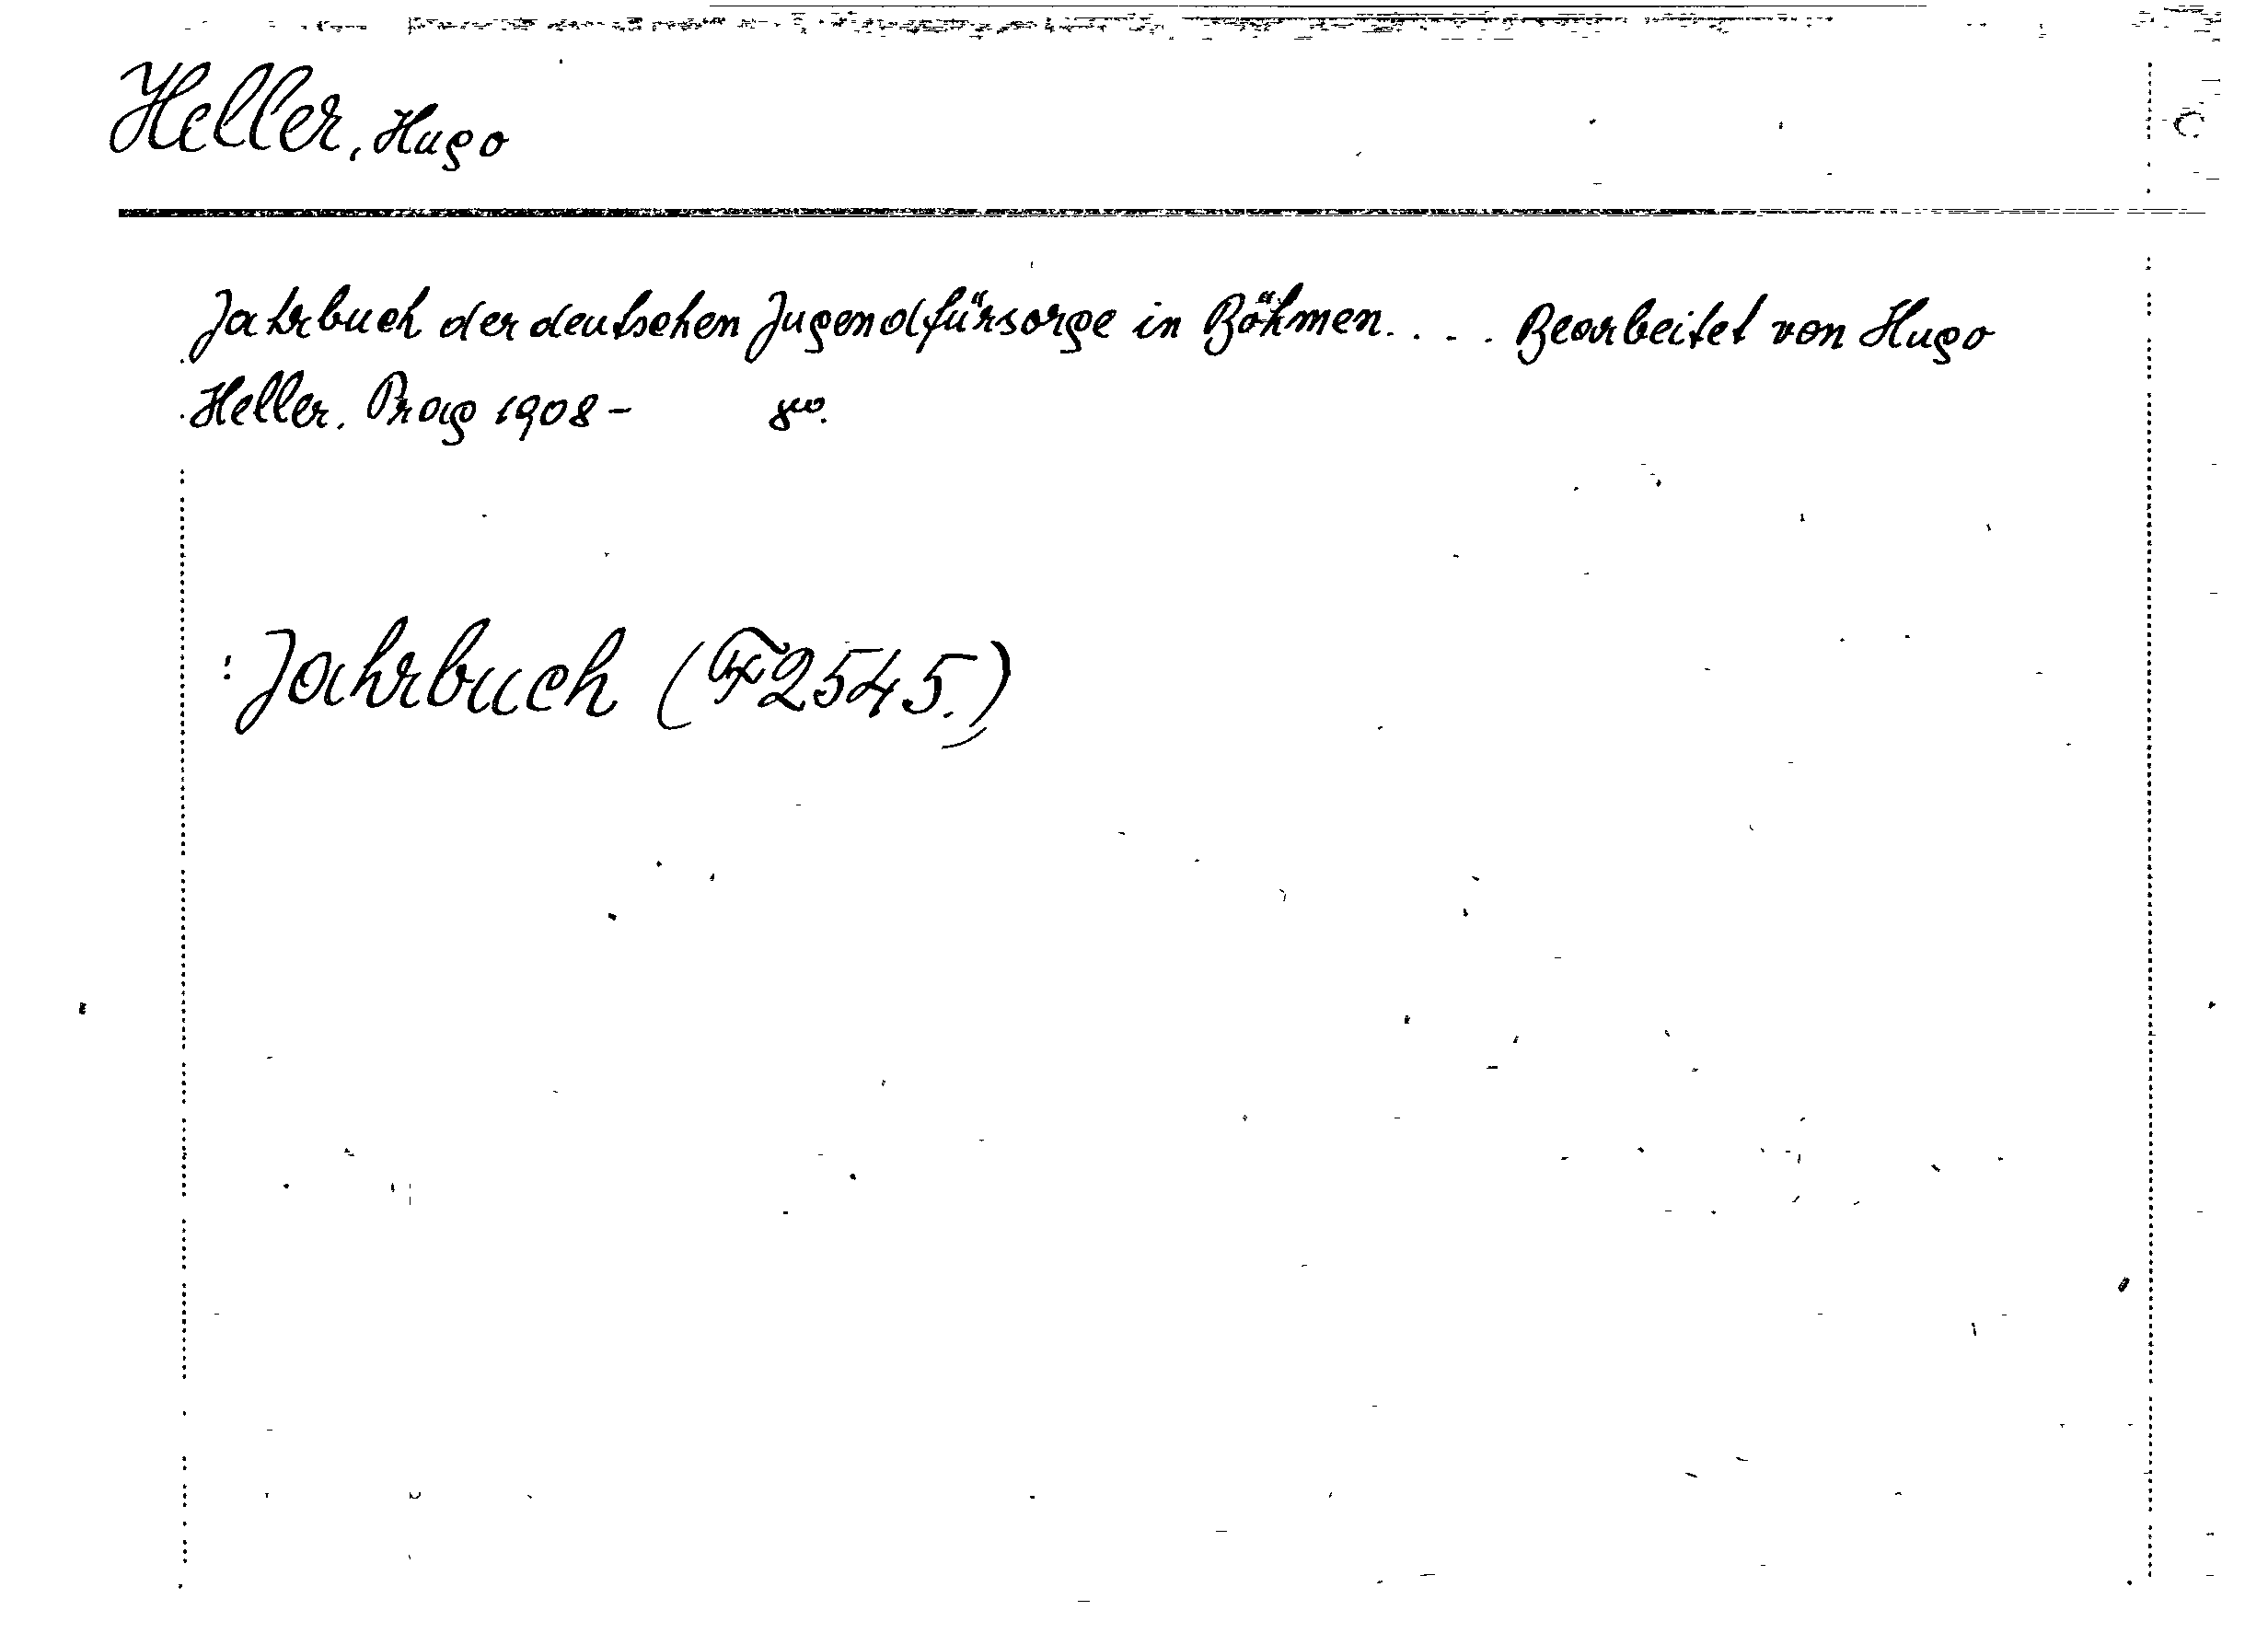 Heller, Hugo
Jahrbuch der deutschen Jugendfürsorge in Böhmen. . . . Bearbeitet von Hugo
Heller. Prag 1908- 8vo.
: Jahrbuch ( 2545.)